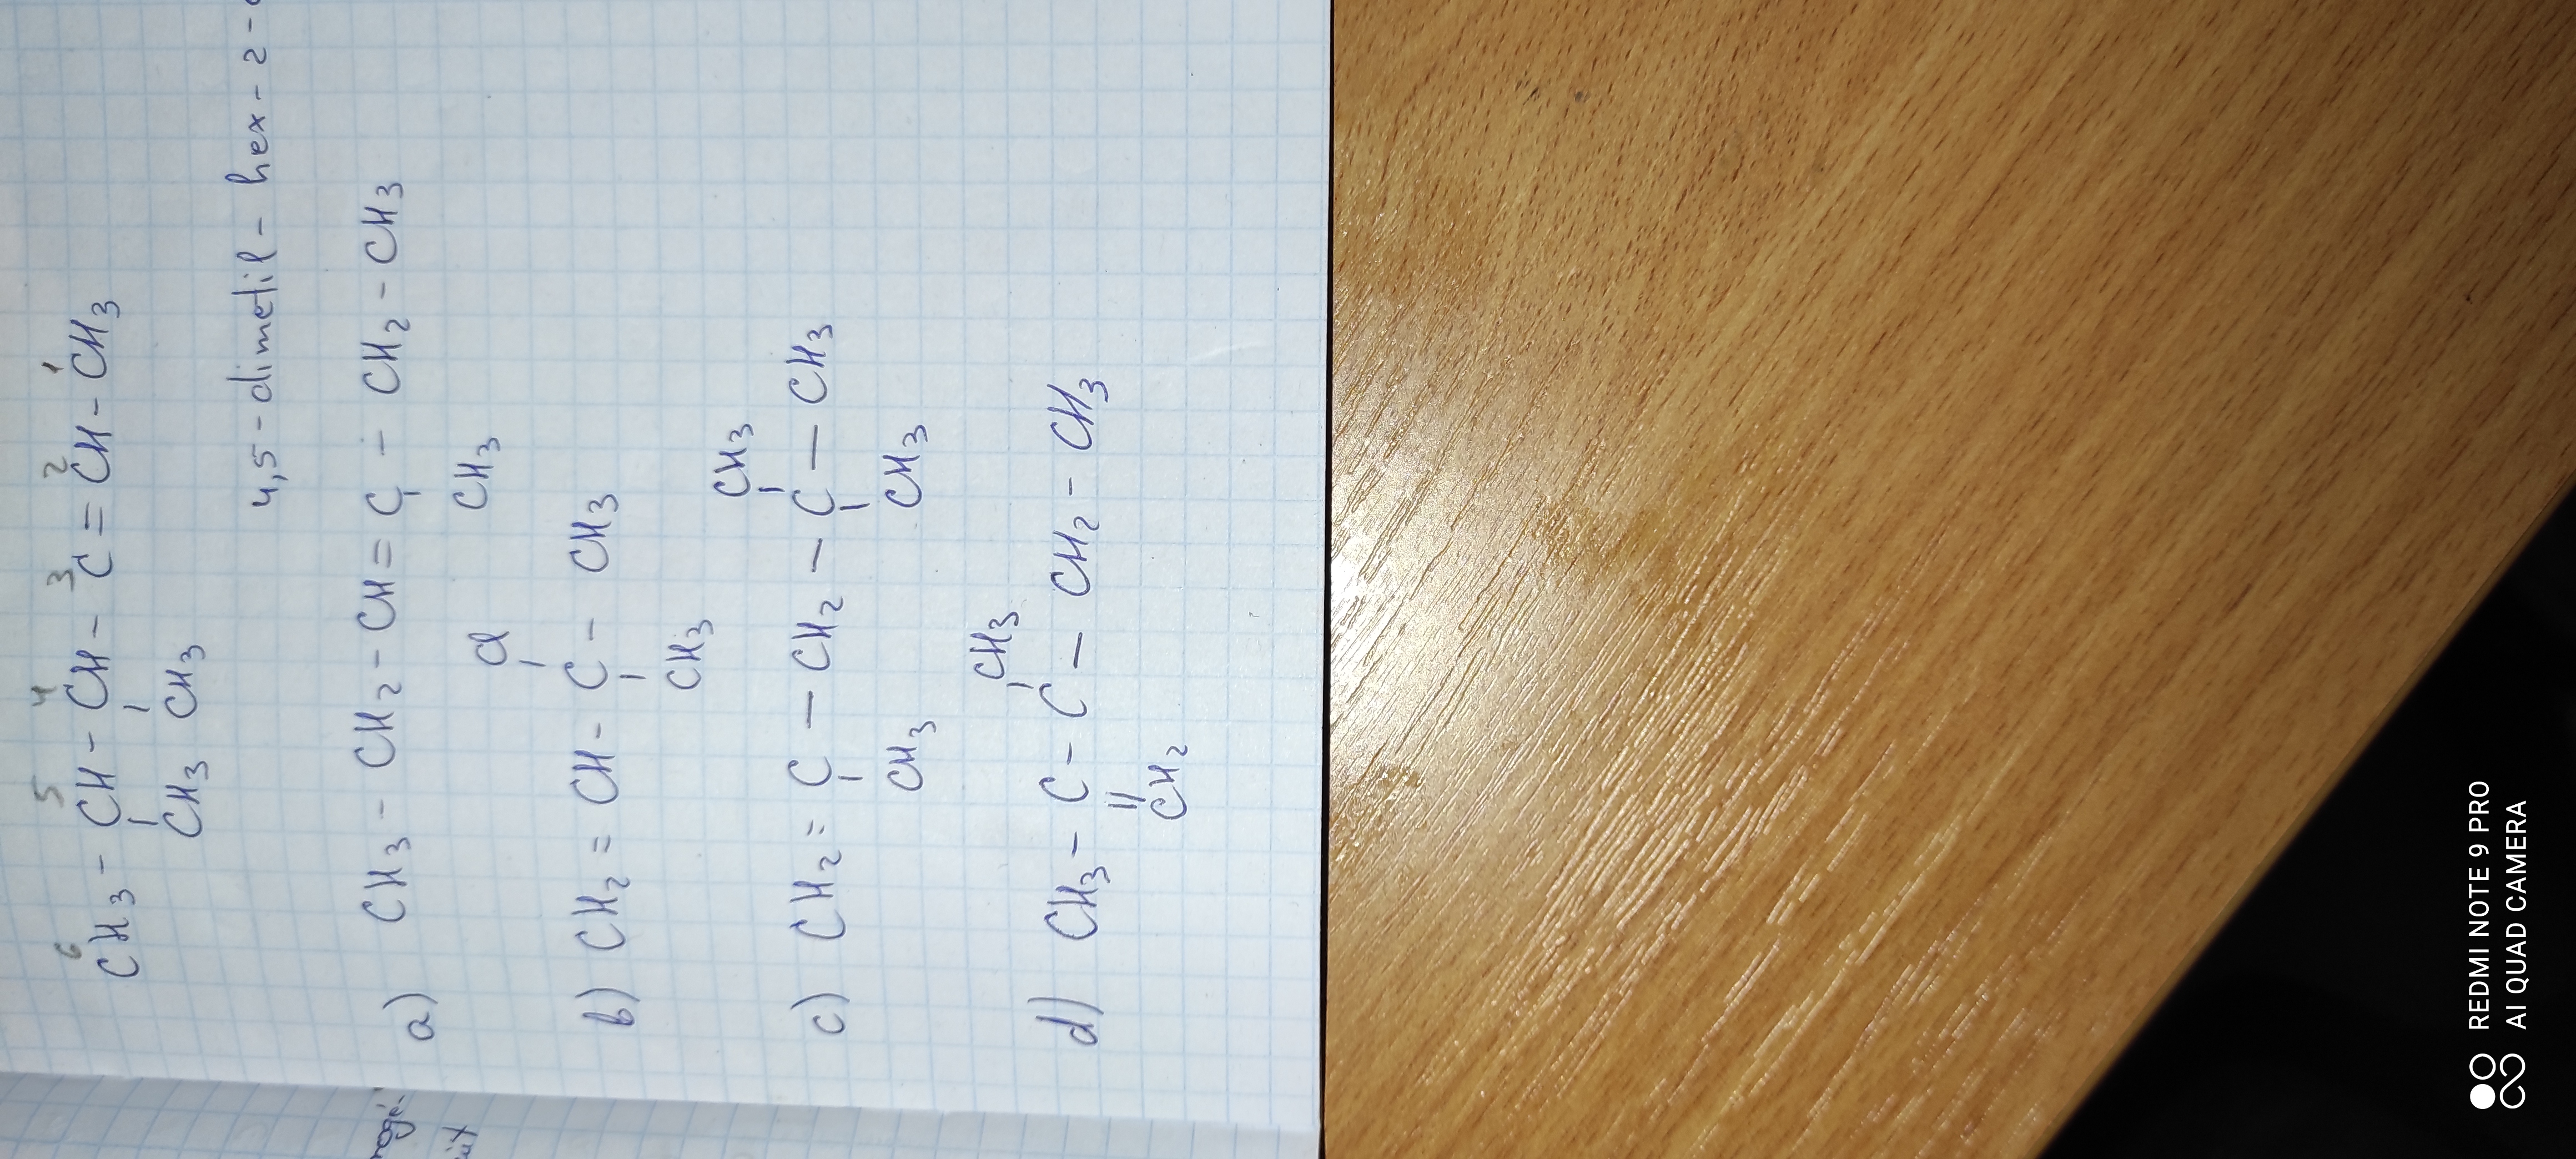 6 5 4 3 2 1
CH3 - CH - CH - C = CH - CH3
CH3 CH3
4,5 - dimetil - hex - 2 -
a) CH3 - CH2 - CH2 - CH = C - CH2 - CH3
CH3
Cl
b) CH2 = CH - C - CH3
CH3
CH3
c) CH2 = C - CH2 - C - CH3
CH3 CH3
CH3
d) CH3 - C - C - CH2 - CH3
CH2
REDMI NOTE 9 PRO
AI QUAD CAMERA